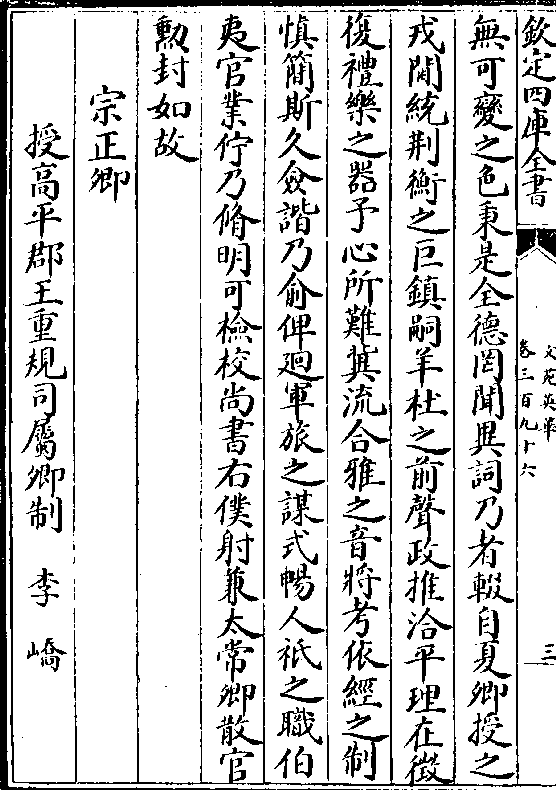 欽定四庫全書
文苑英華
卷三百九十六
三
無可變之色秉是全德罔聞異詞乃者輟自夏卿授之
戎閫統荆衡之巨鎮嗣羊杜之前聲政推洽平理在徴
復禮樂之器予心所難冀流合雅之音將考依經之制
慎簡斯久僉諧乃俞俾廻軍旅之謀式暢人祇之職伯
夷官業佇乃脩明可檢校尚書右僕射兼太常卿散官
勲封如故
宗正卿
授高平郡王重規司屬卿制 李嶠